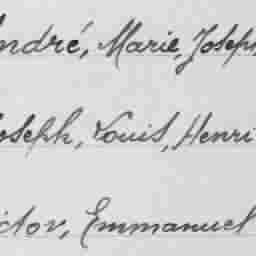 André, Marie, Joseph
Joseph, Louis, Henri
ictor, Emmanuel